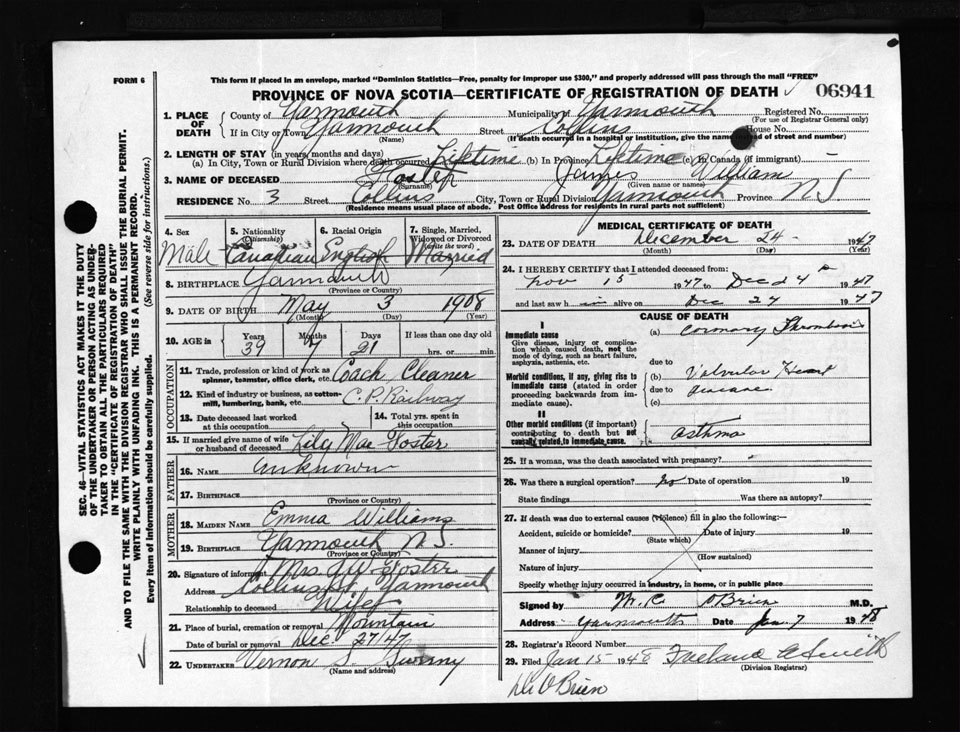 FORM 6
This form if placed in an envelope, marked "Dominion Statistics—Free, penalty for improper use $300," and properly addressed will pass through the mail "FREE"
PROVINCE OF NOVA SCOTIA—CERTIFICATE OF REGISTRATION OF DEATH 06941
1. PLACE OF DEATH
County of Yarmouth Municipality of Yarmouth Registered No.
(For use of Registrar General only)
If in City or Town Yarmouth Street Collins House No.
(Name) (If death occurred in a hospital or institution, give the name instead of street and number)
2. LENGTH OF STAY (in years, months and days)
(a) In City, Town or Rural Division where death occurred Lifetime (b) In Province Lifetime (c) In Canada (if immigrant) -
3. NAME OF DECEASED Foster James William
(Surname) (Given name or names)
RESIDENCE No. 3 Street Collins City, Town or Rural Division Yarmouth Province N S
(Residence means usual place of abode. Post Office Address for residents in rural parts not sufficient)
4. Sex Male
5. Nationality (Citizenship) Canadian
6. Racial Origin English
7. Single, Married, Widowed or Divorced (write the word) Married
8. BIRTHPLACE Yarmouth
(Province or Country)
9. DATE OF BIRTH May 3 1908
(Month) (Day) (Year)
10. AGE in Years Months Days If less than one day old
39 7 21 hrs. or min.
OCCUPATION
11. Trade, profession or kind of work as spinner, teamster, office clerk, etc. Coach Cleaner
12. Kind of industry or business, as cotton-mill, lumbering, bank, etc. C. P. Railway
13. Date deceased last worked at this occupation
14. Total yrs. spent in this occupation
15. If married give name of wife or husband of deceased Lily Mae Foster
FATHER
16. NAME Unknown
17. BIRTHPLACE
(Province or Country)
MOTHER
18. MAIDEN NAME Emma Williams
19. BIRTHPLACE Yarmouth N.S.
(Province or Country)
20. Signature of informant Mrs. J. W. Foster
Address Collins St. Yarmouth
Relationship to deceased Wife
21. Place of burial, cremation or removal Mountain
Date of burial or removal Dec 27/47
22. UNDERTAKER Vernon S.
(Name and address)
MEDICAL CERTIFICATE OF DEATH
23. DATE OF DEATH December 24 1947
(Month) (Day) (Year)
24. I HEREBY CERTIFY that I attended deceased from:
Nov 15 1947 to Dec 24 1947
and last saw him alive on Dec 24 1947
CAUSE OF DEATH
I
Immediate cause
Give disease, injury or complication which caused death, not the mode of dying, such as heart failure, asphyxia, asthenia, etc.
(a) Coronary Thrombosis
due to
Morbid conditions, if any, giving rise to immediate cause (stated in order proceeding backwards from immediate cause).
(b) Valvular Heart
due to disease
(c)
II
Other morbid conditions (if important) contributing to death but not causally related to immediate cause. asthma
25. If a woman, was the death associated with pregnancy? -
26. Was there a surgical operation? no Date of operation 19
State findings Was there an autopsy?
27. If death was due to external causes (violence) fill in also the following:—
Accident, suicide or homicide? Date of injury 19
(State which)
Manner of injury
(How sustained)
Nature of injury
Specify whether injury occurred in industry, in home, or in public place
Signed by M. C. O'Brien M.D.
Address Yarmouth Date Jan 7 1948
28. Registrar's Record Number
29. Filed Jan 15 1948 Smith
(Division Registrar)
Dr O'Brien
SEC. 46—VITAL STATISTICS ACT MAKES IT THE DUTY
OF THE UNDERTAKER OR PERSON ACTING AS UNDER-
TAKER TO OBTAIN ALL THE PARTICULARS REQUIRED
IN THE "CERTIFICATE OF REGISTRATION OF DEATH"
AND TO FILE THE SAME WITH THE DIVISION REGISTRAR WHO SHALL ISSUE THE BURIAL PERMIT.
WRITE PLAINLY WITH UNFADING INK. THIS IS A PERMANENT RECORD.
Every item of information should be carefully supplied. (See reverse side for instructions.)